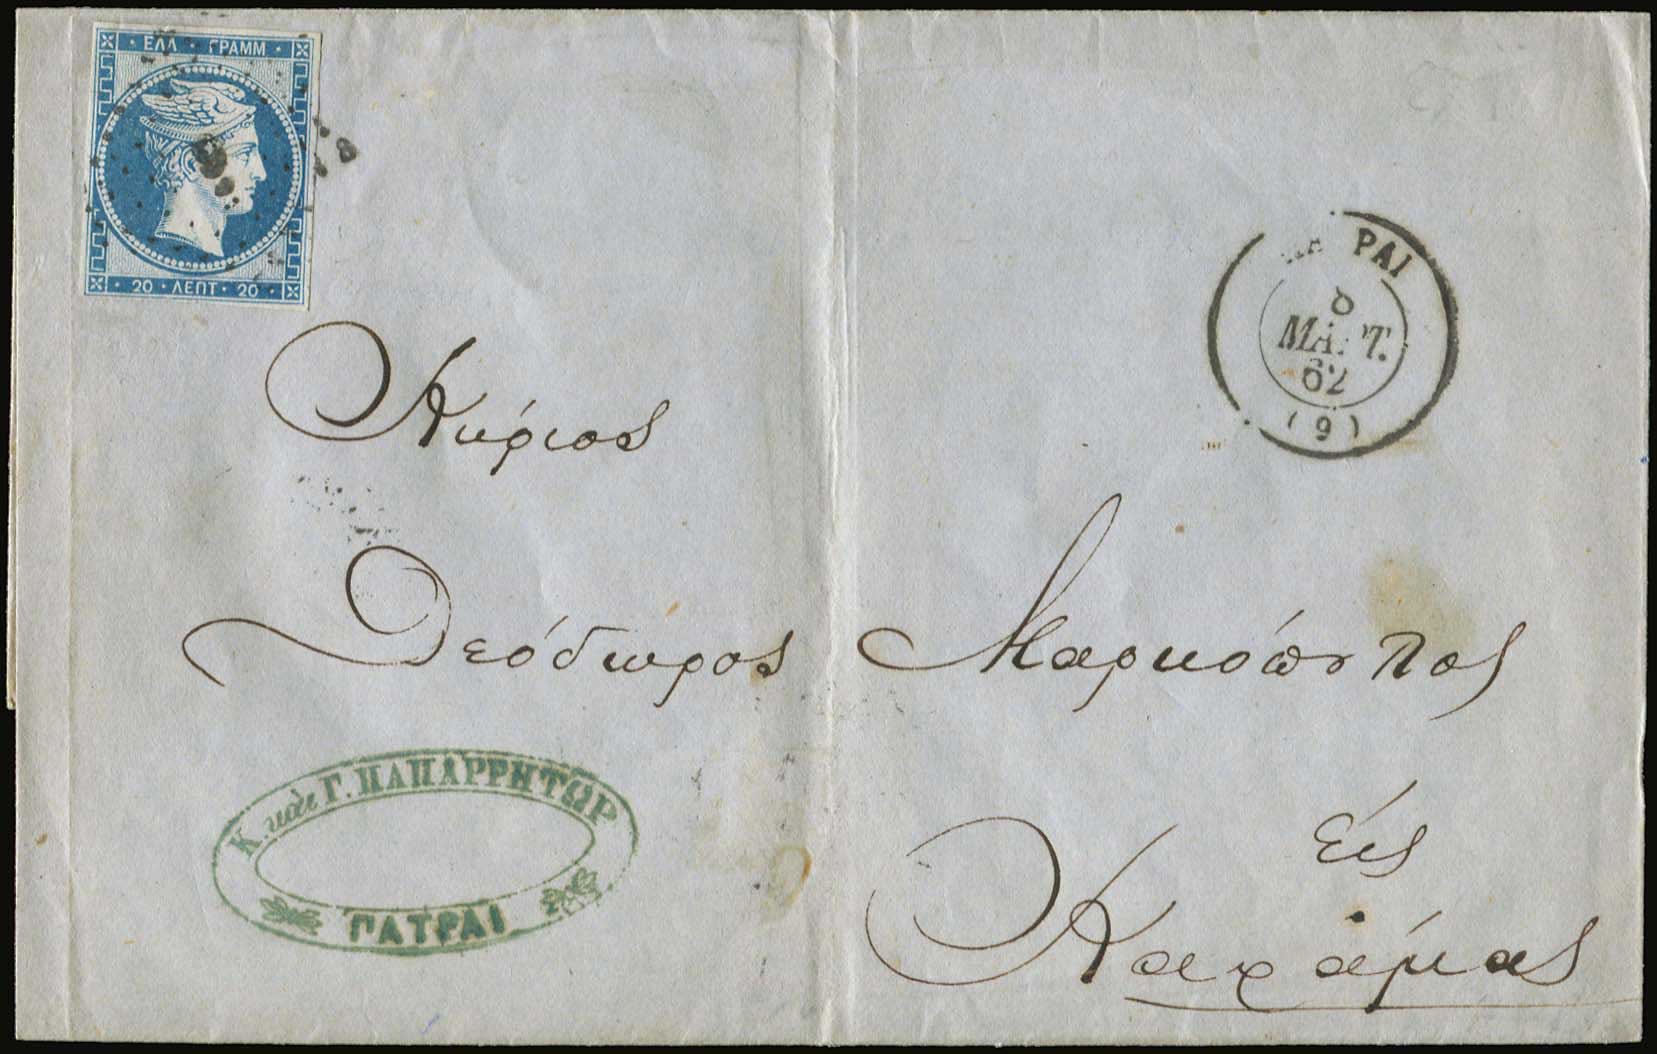 ΕΛΛ · ΓΡΑΜΜ
20 · ΛΕΠΤ · 20
9
ΠΑΤΡΑΙ
8
ΜΑΡΤ.
62
(9)
Κύριος
Θεόδωρος Μαρκόπουλος
εἰς
Καλάμας
Κ. καὶ Γ. ΠΑΠΑΡΡΗΤΩΡ
ΠΑΤΡΑΙ